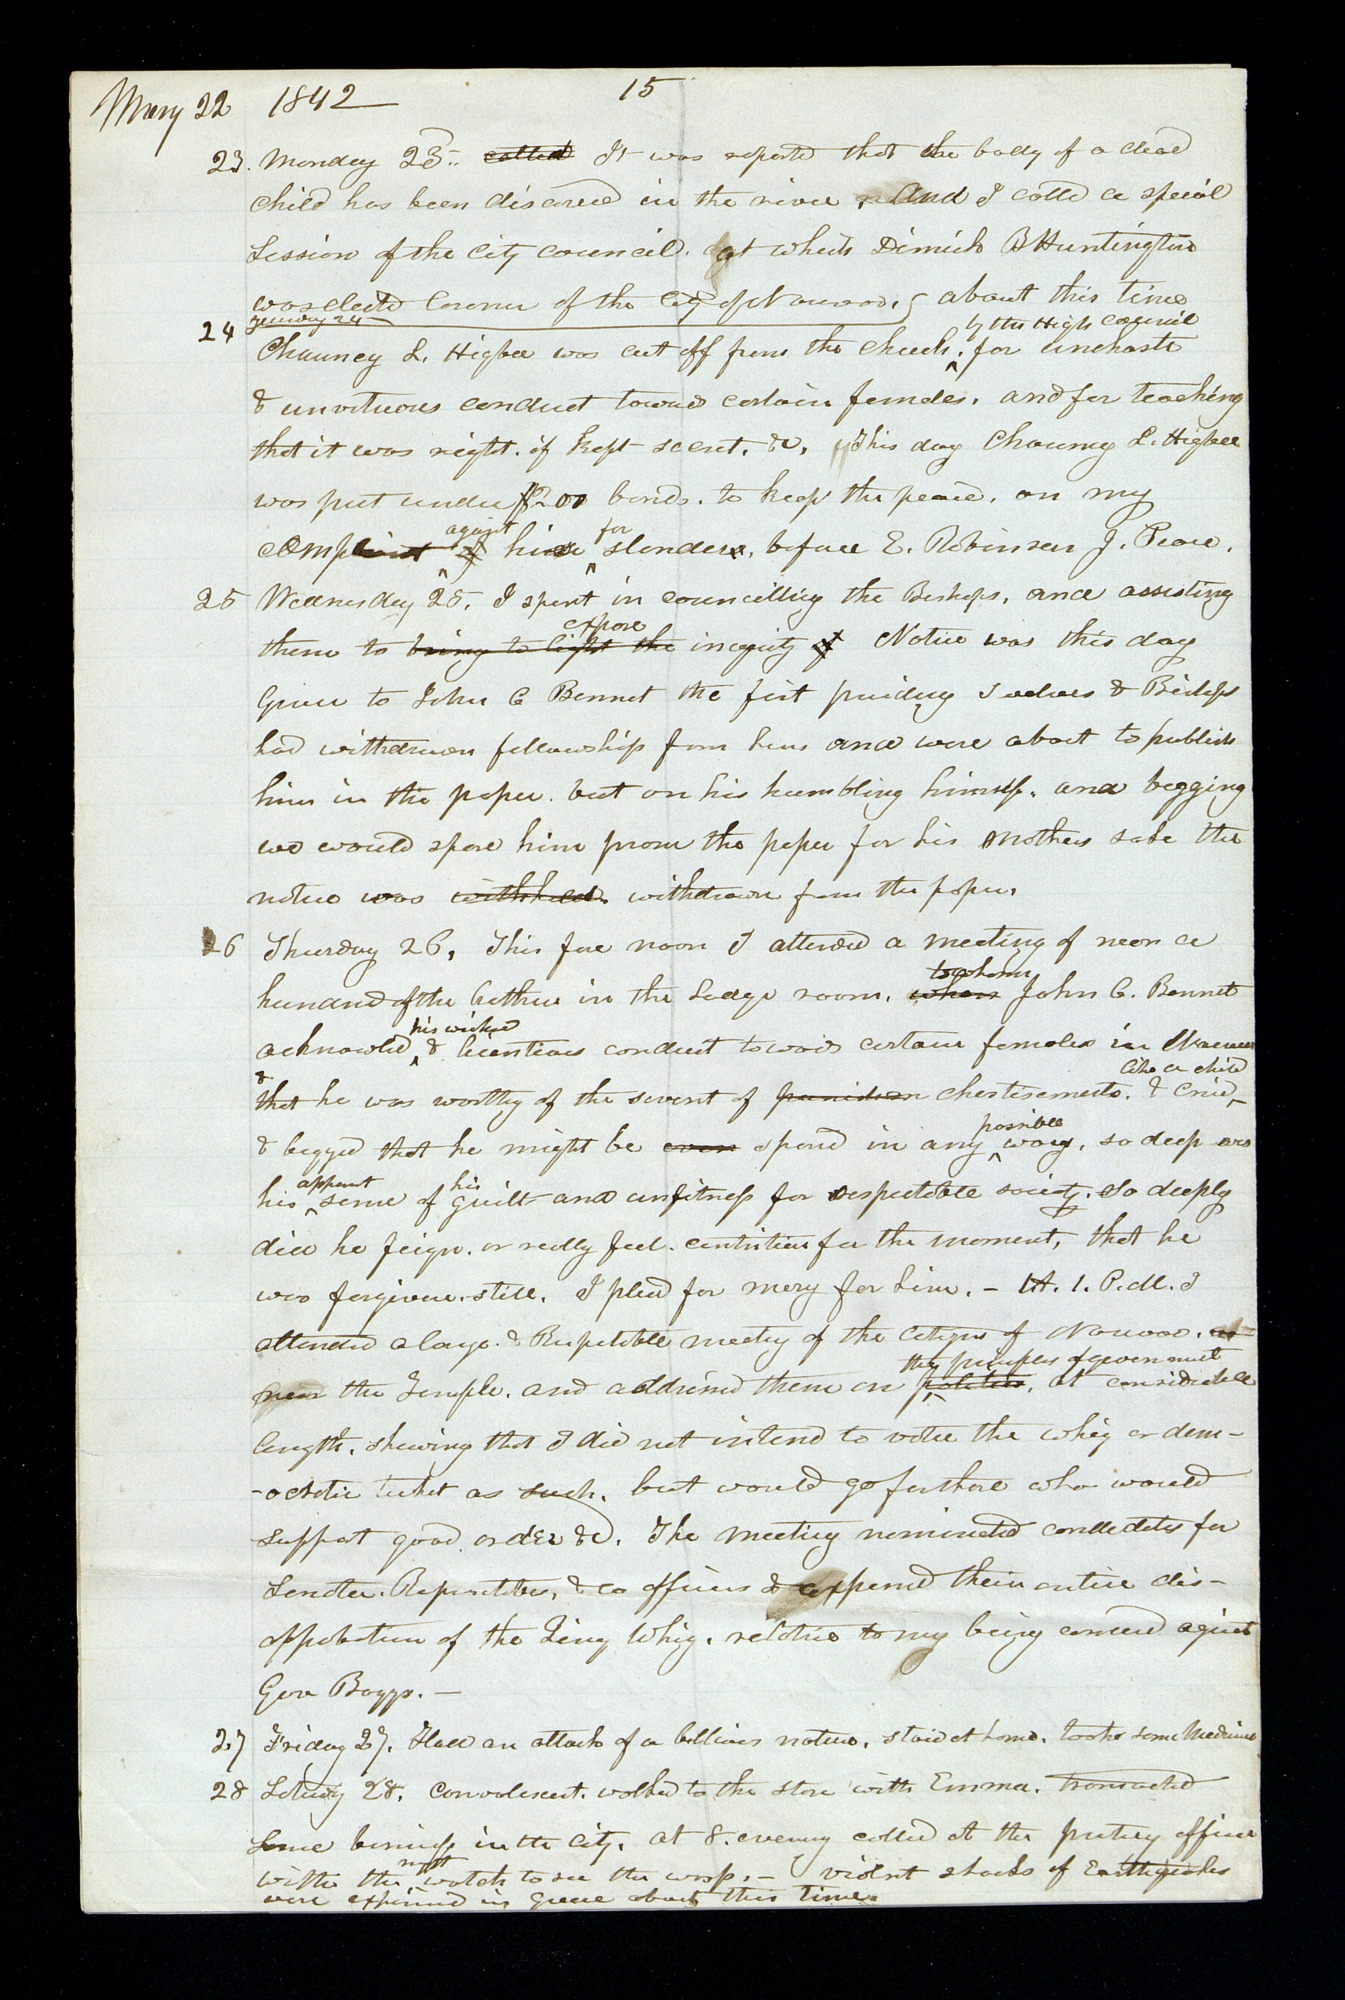 May 22 1842 15
23. Monday 23d.. called It was reported that the body of a dead
child has been discoverd in the river, and I calld a special
session of the City council. at which Dimick B Huntington
was electd Coroner of the City of Nauvoo. about this time
Tuesday 24 by the High Council
24 Chauncy L. Higbee was cut off from the church. for unchaste
& unvirtuous conduct toward certain females. and for teaching
that it was right. if kept secret. &c. This day Chauncy L. Higbee
was put under $200 bonds. to keep the peace. on my
against for
complaint of him slander, before E. Robinson J. Peace.
25 Wednesday 25. I spent in councilling the Bishops, and assisting
expose
them to bring to light the iniquity of Notice was this day
Given to John C Bennet the first presidency Twelves & Bishops
had withdrawn fellowship from him and were about to publish
him in the paper. but on his humbling himself. and begging
we would spare him from the paper for his mothers sake the
notice was withheld. withdrawn from the paper.
26 Thursday 26, This fore noon I attended a meeting of near a
to whom
hundred of the brethren in the Lodge room. where John C. Bennet
his wicked
acknowled & licentious conduct towards certain females in Nauvoo
& like a child
that he was worthy of the severest of chastisements. & cried,
possible
& begged that he might be even spared in any way, so deep was
apparent his
his sense of guilt and unfitness for respectable society. so deeply
did he feign. or really feel. contrition for the moment, that he
was forgiven. still. I plead for mercy for him. - At. 1. P.M. I
attended a large. & Respectable meeting of the Citizens of Nauvoo. at
the principles of government
near the Temple. and addressed them on politics, at considerable
length. shewing that I did not intend to vote the whig or dem-
-ocratic ticket as such. but would go for those who would
support good order &c. The meeting nominated candidates for
Senator. Representatives, & co officers & expressed their entire dis-
approbation of the Whig. relative to my being concerned against
Gov Boggs. —
27 Friday 27. Had an attack of a billious nature, staid at home. took some Medicine
28 Saturday 28. Convalescent. walked to the store with Emma. transacted
some business in the city. at 8. evening called at the printing office
night
with the watch to see the wasp. - violent shocks of Earthquakes
were experienced in Greece about this time.